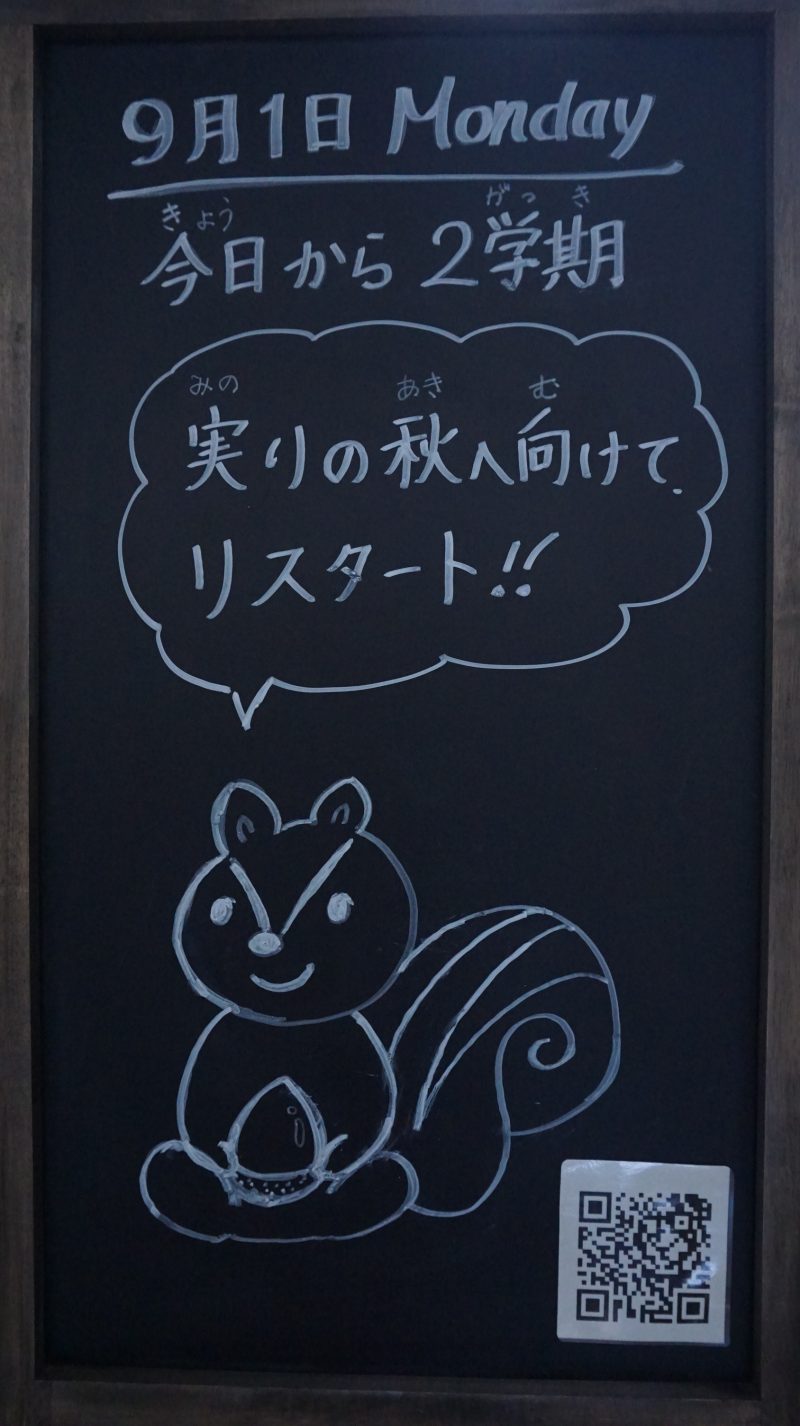 9月1日 Monday
きょう がっき
今日から 2学期
みの あき む
実りの秋へ向けて、
リスタート!!